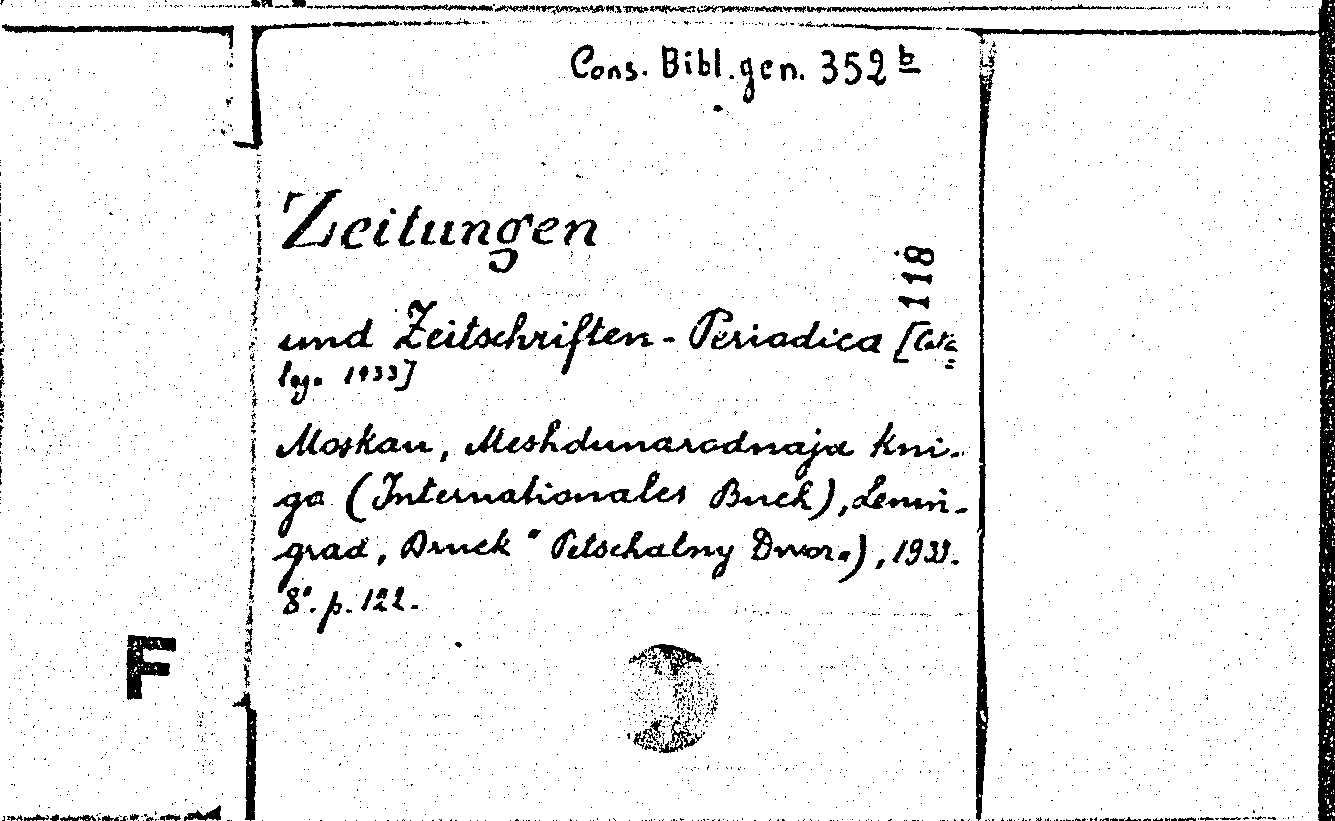 Cons. Bibl. gen. 352 b
Zeitungen
118
und Zeitschriften - Periadica [Cata=
log. 1933]
Moskau, Meshdunarodnaja Kni-
ga (Internationales Buch), Lenin-
grad, Druck "Petschatny Dwor.), 1933.
8°. p. 122.
F